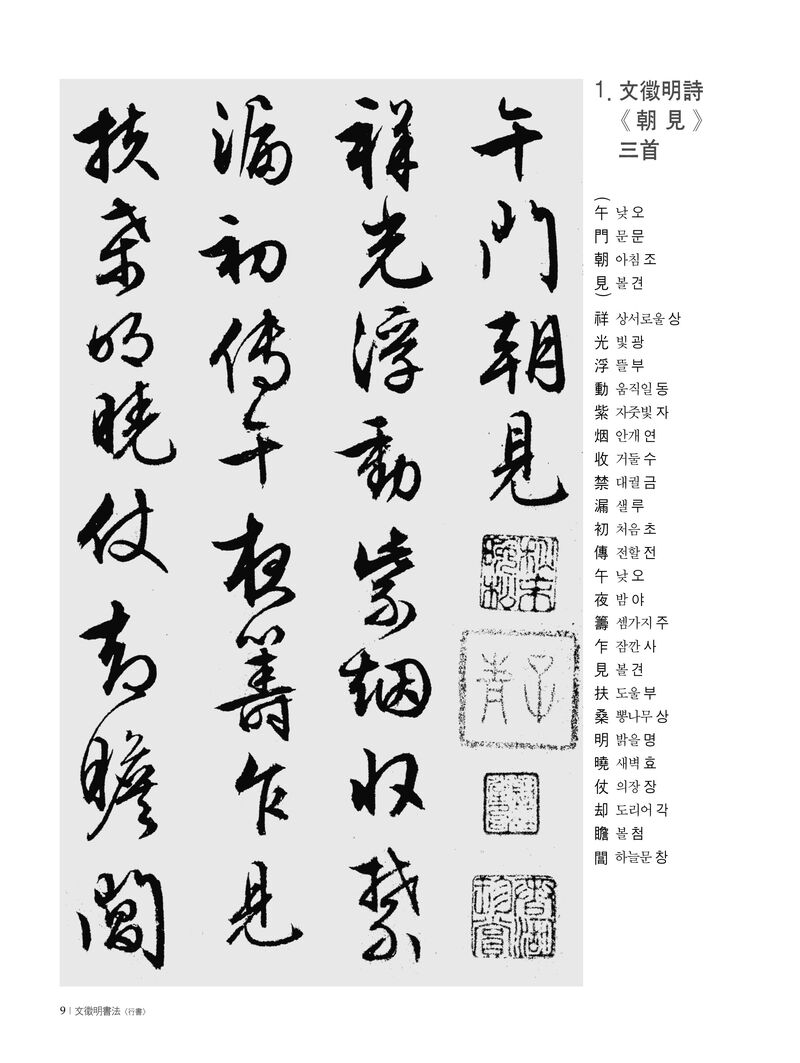 1. 文徵明詩
《朝見》
三首
(午 낮 오
門 문 문
朝 아침 조
見 볼 견)
祥 상서로울 상
光 빛 광
浮 뜰 부
動 움직일 동
紫 자줏빛 자
烟 안개 연
收 거둘 수
禁 대궐 금
漏 샐 루
初 처음 초
傳 전할 전
午 낮 오
夜 밤 야
籌 셈가지 주
乍 잠깐 사
見 볼 견
扶 도울 부
桑 뽕나무 상
明 밝을 명
曉 새벽 효
仗 의장 장
却 도리어 각
瞻 볼 첨
閶 하늘문 창
午門朝見
子青
祥光浮動紫烟收禁
漏初傳午夜籌乍見
扶桑明曉仗却瞻閶
9 | 文徵明書法 (行書)